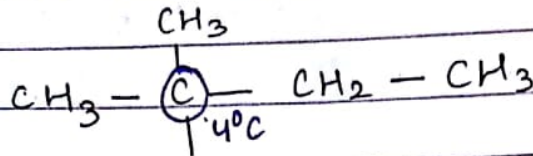 CH3
CH3 — C — CH2 — CH3
4°C